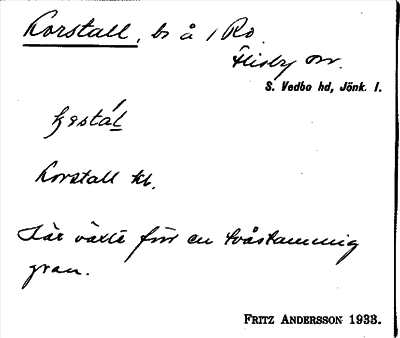 Korstall, bs å 1 Ro
Flisby sn.
S. Vedbo hd, Jönk. l.
Korstall kb.
Där växte förr en tvåstammig
gran.
FRITZ ANDERSSON 1933.